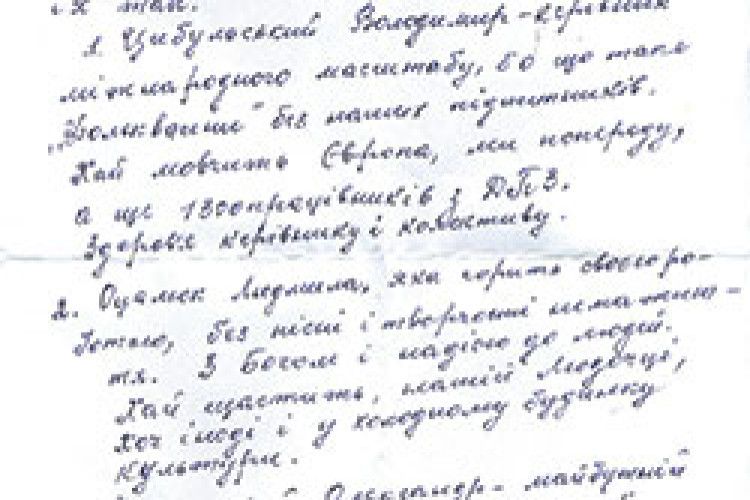 і я там.
1. Цибульський Володимир - керівник
міжнародного масштабу, бо що таке
„Вольксваген" без наших підшипників.
Хай мовчить Європа, ми попереду,
а ще 1300 працівників з ДПЗ.
Здоров'я керівнику і колективу.
2. Оцалюк Людмила, яка горить своєю ро-
ботою, без пісні і творчості нема жит-
тя. З Богом і надією до людей.
Хай щастить, нашій Людочці,
хоч іноді і у холодному будинку
культури.
Олександр - майбутній